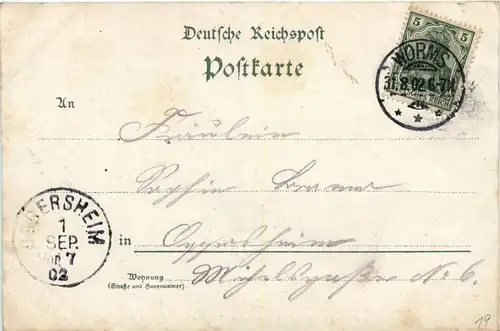 Deutsche Reichspost
Postkarte
5 5
WORMS
31.8.02.6-7N.
An
Fräulein
Sophie
in Oppersheim
Wohnung
(Straße und Hausnummer)
No 6.
GERSHEIM
1
SEP.
7
02
19